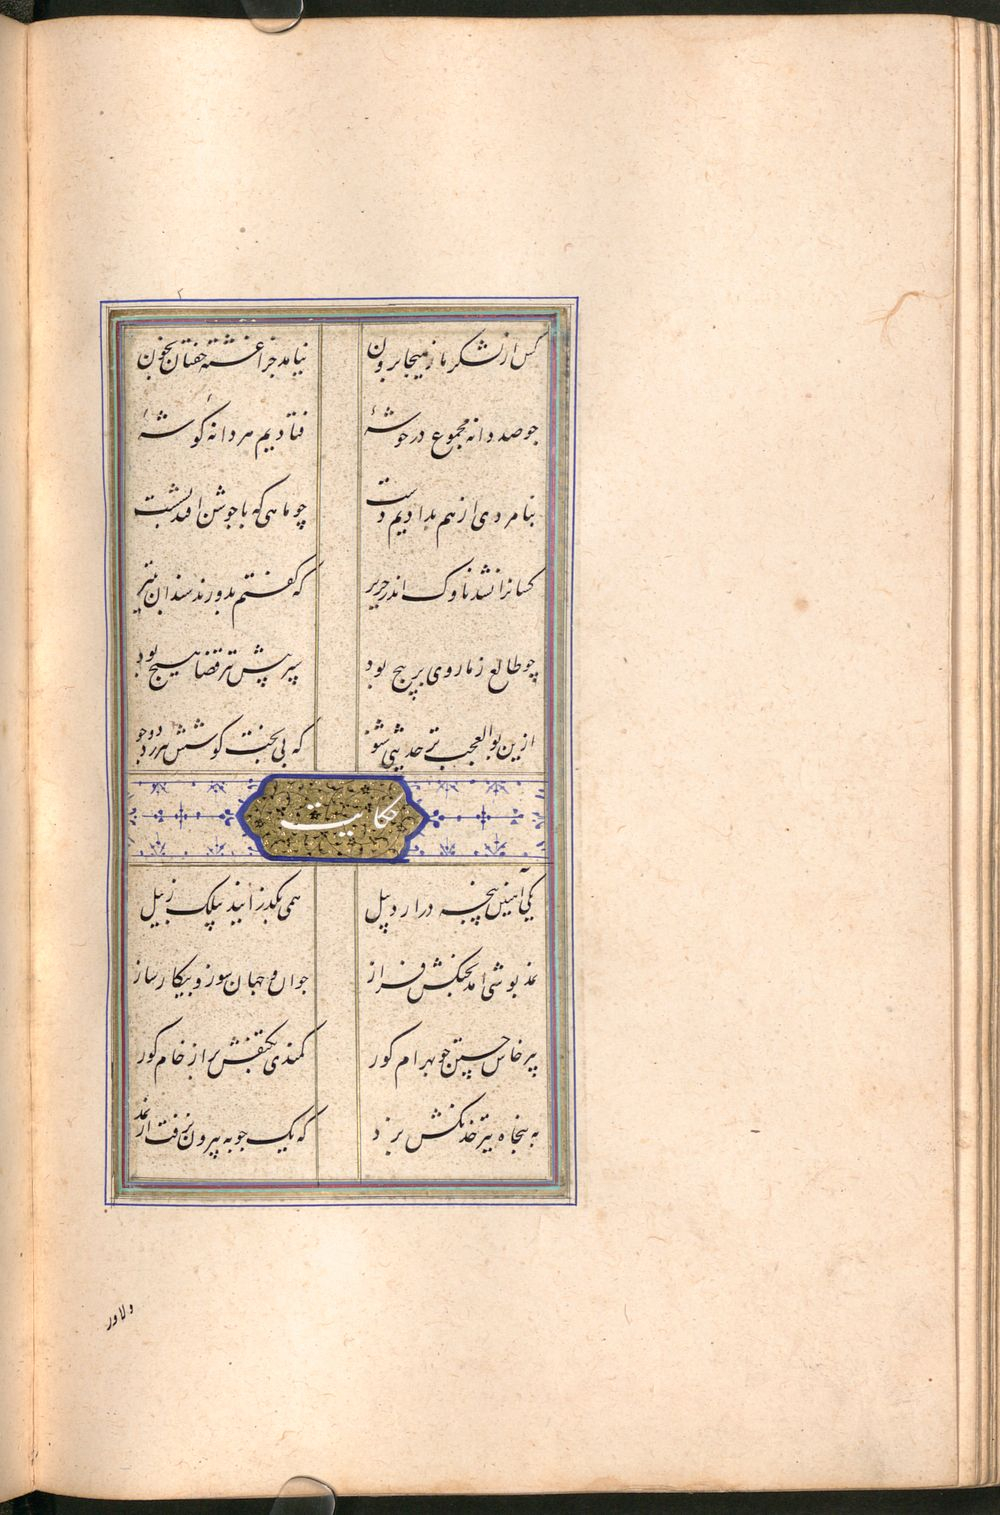 کس از لشکر ما ز هیجا برون نیامد جز آغشته خفتان بخون
چو صد دانه مجموع در خوشهٔ فتادیم هر دانهٔ گوشهٔ
بنامردی از هم بدادیم دست چو ماهی که با جوشن افتد بشست
کسانرا نشد ناوک اندر حریر که گفتم بدوزند سندان بتیر
چو طالع ز ما روی بر پیچ بود سپر پیش تیر قضا هیچ بود
ازین بوالعجب تر حدیثی شنو که بی بخت کوشش نیرزد دو جو
حکایت
یکی آهنین پنجه در اردبیل همی بگذرانید پیلک ز بیل
نمد پوشی آمد بجنگش فراز جوان و جهان سوز و پیکار ساز
پرخاش جستن چو بهرام گور کمندی بکتفش بر از خام گور
به پنجاه تیر خدنگش بزد که یک چوبه بیرون نرفت از نمد
دلاور